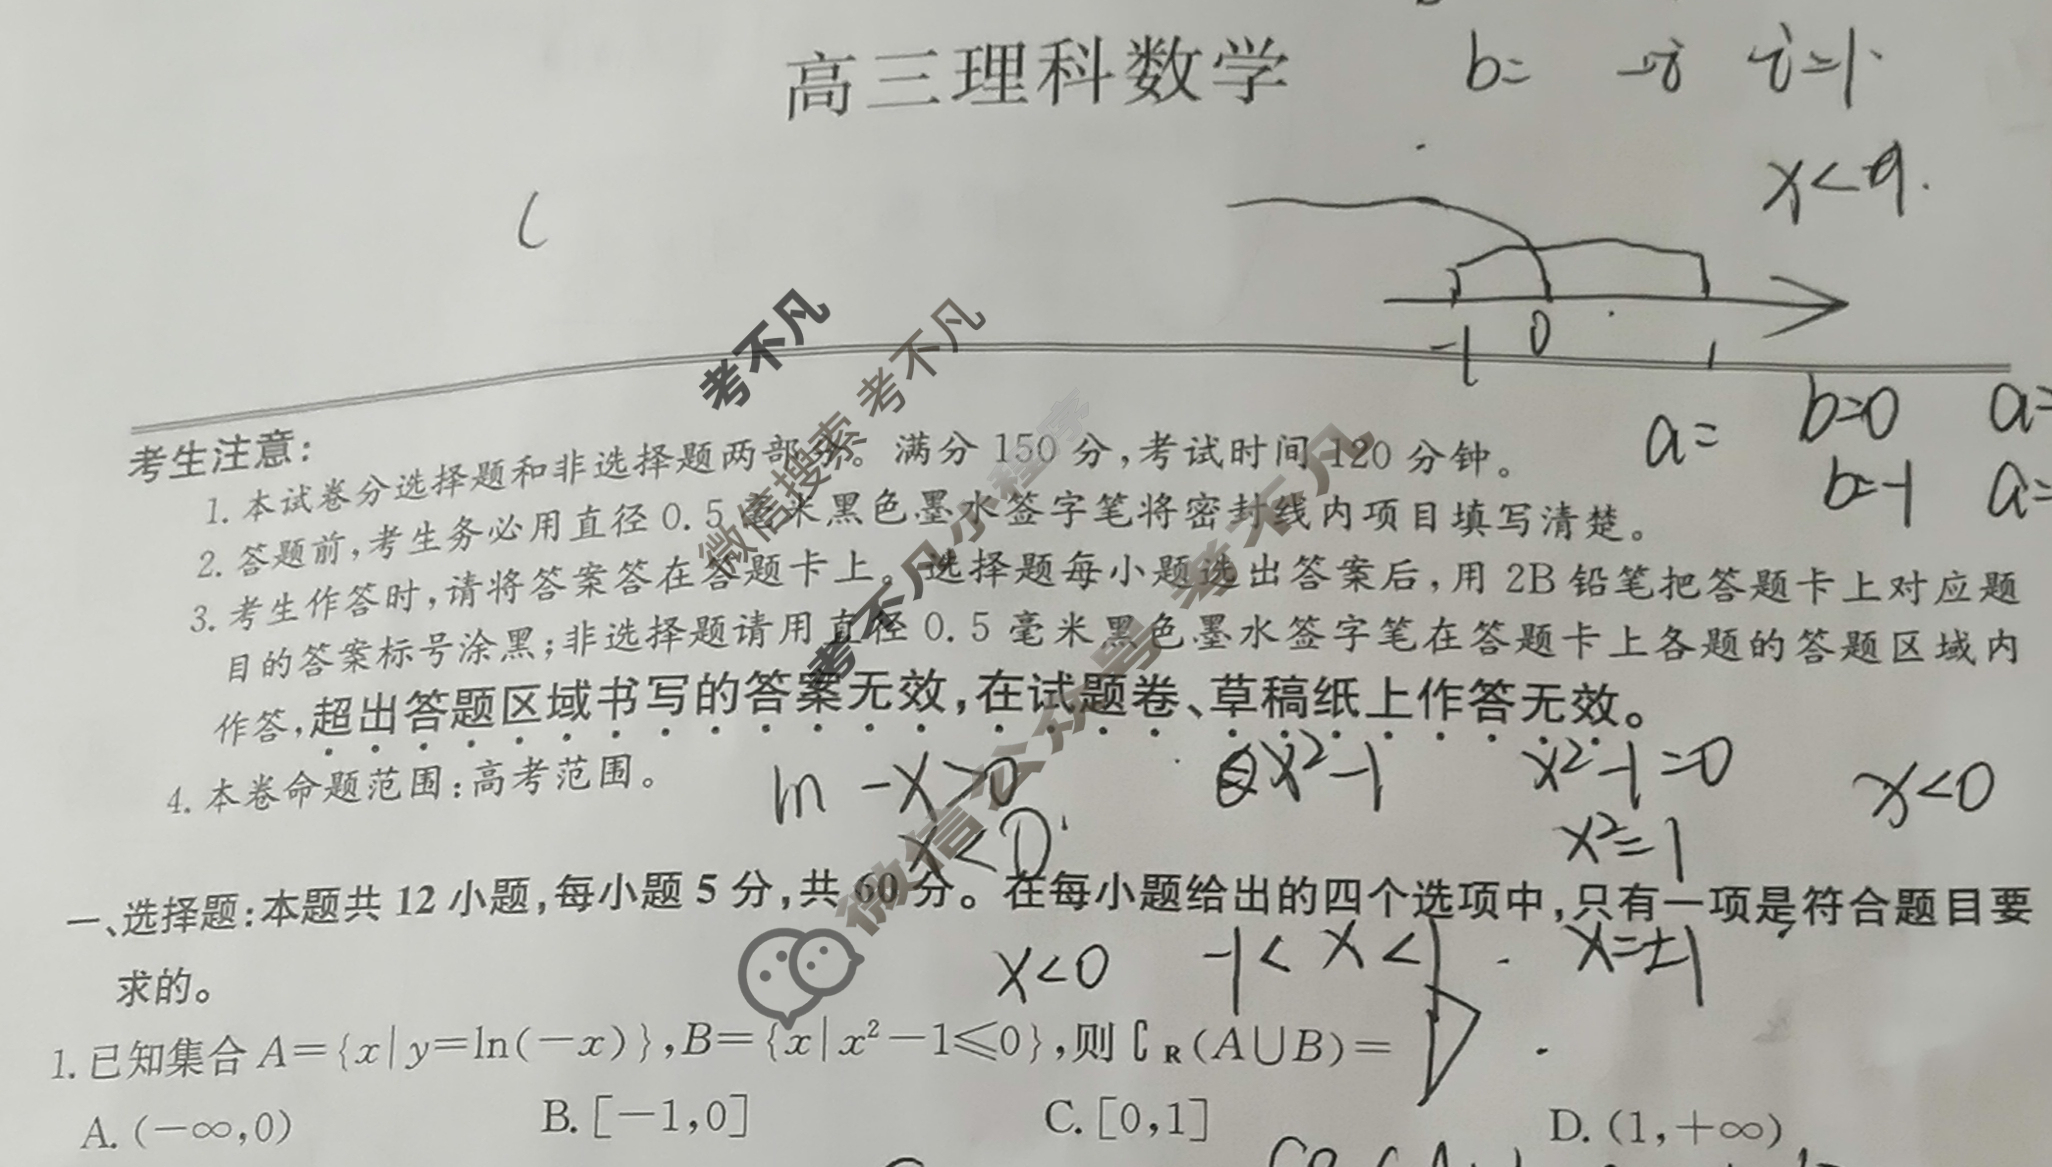 高三理科数学
b= -i i=1
x<-9.
-1 0 1
考生注意:
b=0 a=
a=
b=-1 a=
1. 本试卷分选择题和非选择题两部分。满分 150 分,考试时间 120 分钟。
2. 答题前,考生务必用直径 0.5 毫米黑色墨水签字笔将密封线内项目填写清楚。
3. 考生作答时,请将答案答在答题卡上。选择题每小题选出答案后,用 2B 铅笔把答题卡上对应题
目的答案标号涂黑;非选择题请用直径 0.5 毫米黑色墨水签字笔在答题卡上各题的答题区域内
作答,超出答题区域书写的答案无效,在试题卷、草稿纸上作答无效。
4. 本卷命题范围:高考范围。
ln -x>0 x²-1 x²-1=0 x<0
x<0 x²=1
一、选择题:本题共 12 小题,每小题 5 分,共 60 分。在每小题给出的四个选项中,只有一项是符合题目要
求的。
x<0 -1<x<1 x=±1
1. 已知集合 A={x|y=ln(-x)},B={x|x²-1≤0},则∁R(A∪B)= D
A. (-∞,0) B. [-1,0] C. [0,1] D. (1,+∞)
考不凡
微信搜索 考不凡
考不凡小程序
微信公众号 考不凡